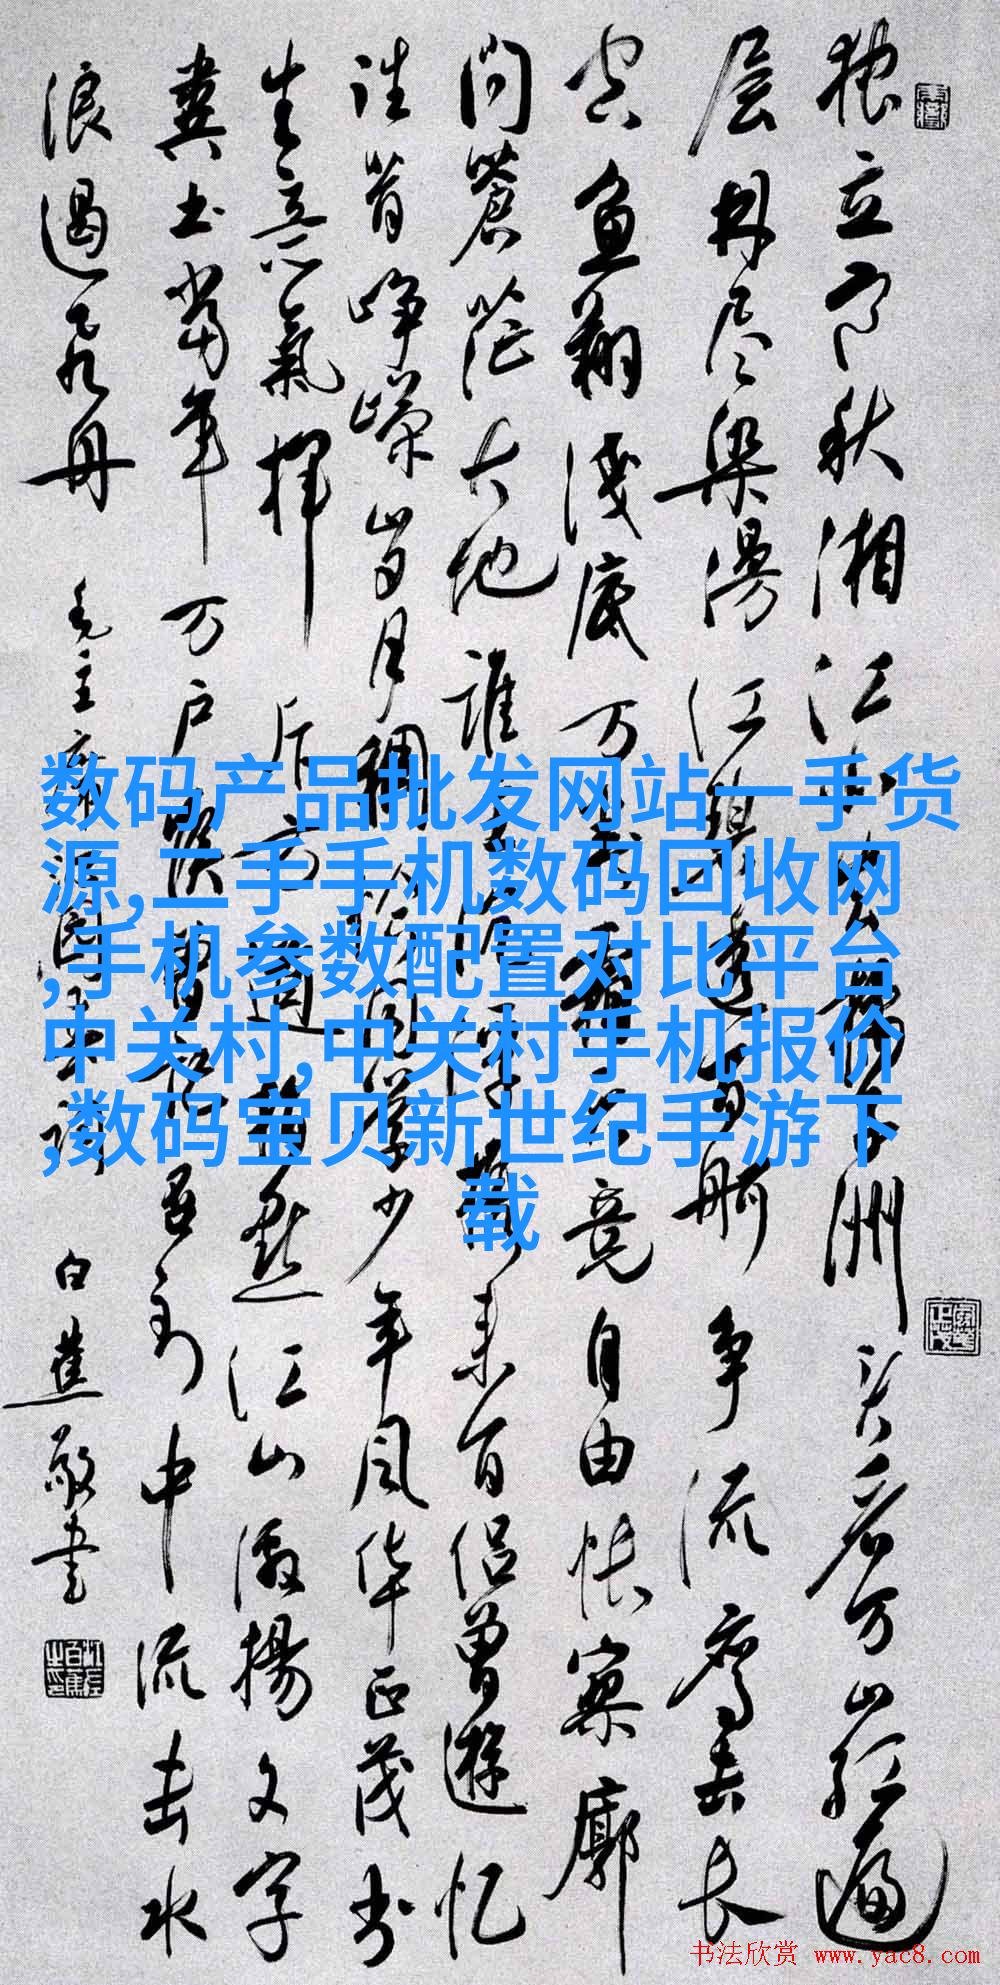 独立寒秋湘江北去橘子洲头看万山红遍
层林尽染漫江碧透百舸争流鹰击长
空鱼翔淺底万类霜天竞自由怅寥廓
问蒼茫大地誰主沉浮携来百侣曾遊忆
往昔峥嵘岁月稠恰同学少年风华正茂书
生意氣挥斥方遒指点江山激揚文字
粪土当年万户侯曾记否到中流击水
浪遏飞舟 毛主席沁园春长沙 白蕉敬书
数码产品批发网站一手货
源,二手手机数码回收网
,手机参数配置对比平台
中关村,中关村手机报价
,数码宝贝新世纪手游下
载
书法欣赏 www.yac8.com